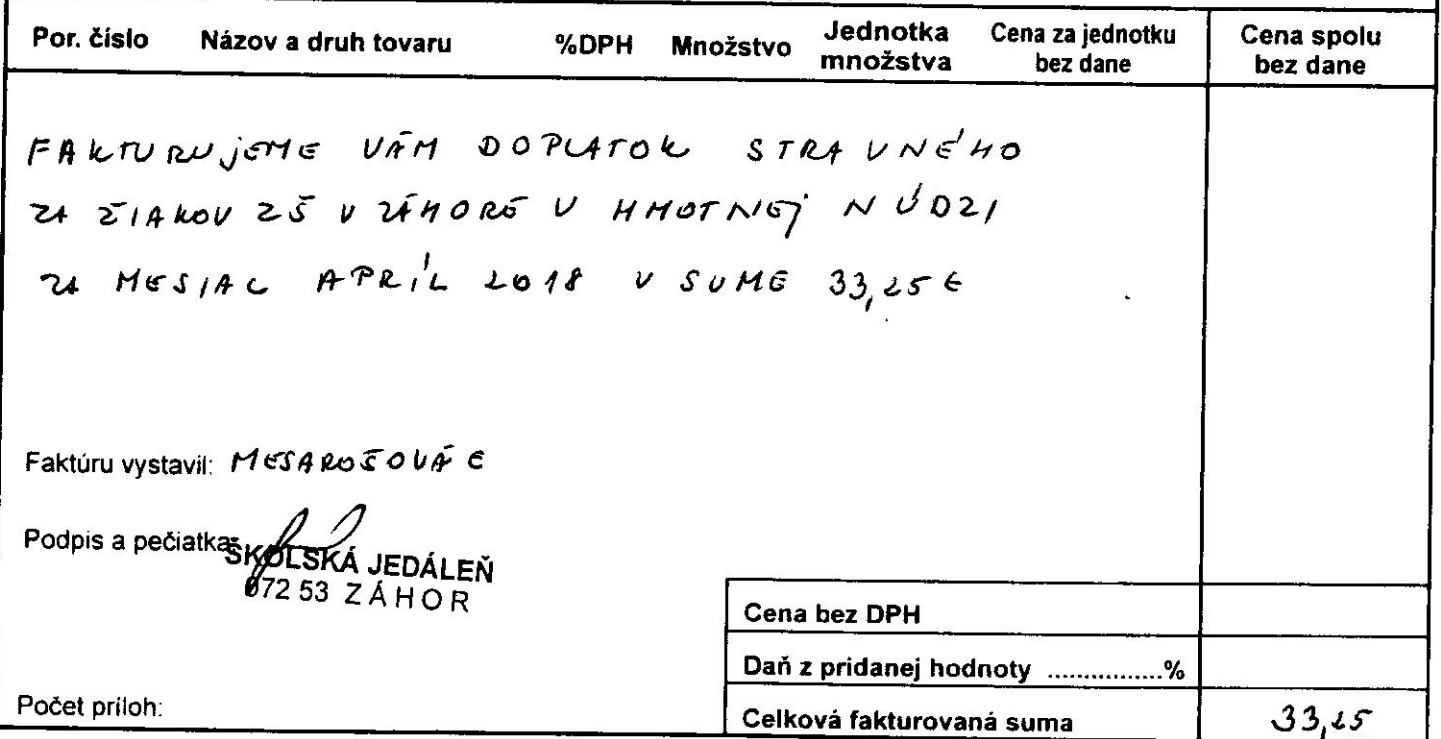 Por. číslo Názov a druh tovaru %DPH Množstvo Jednotka množstva Cena za jednotku bez dane Cena spolu bez dane
FAKTURUJEME VÁM DOPLATOK STRAVNÉHO
ZA ŽIAKOV ZŠ V ZÁHORE V HMOTNEJ NÚDZI
ZA MESIAC APRÍL 2018 V SUME 33,25 €
Faktúru vystavil: MESAROŠOVÁ E
Podpis a pečiatka:
ŠKOLSKÁ JEDÁLEŇ
072 53 ZÁHOR
Cena bez DPH
Daň z pridanej hodnoty ................%
Počet príloh:
Celková fakturovaná suma 33,25